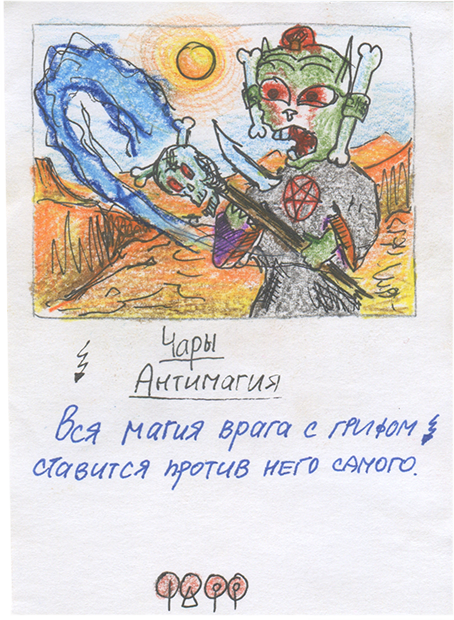 Чары
Антимагия
Вся магия врага с грифом
ставится против него самого.